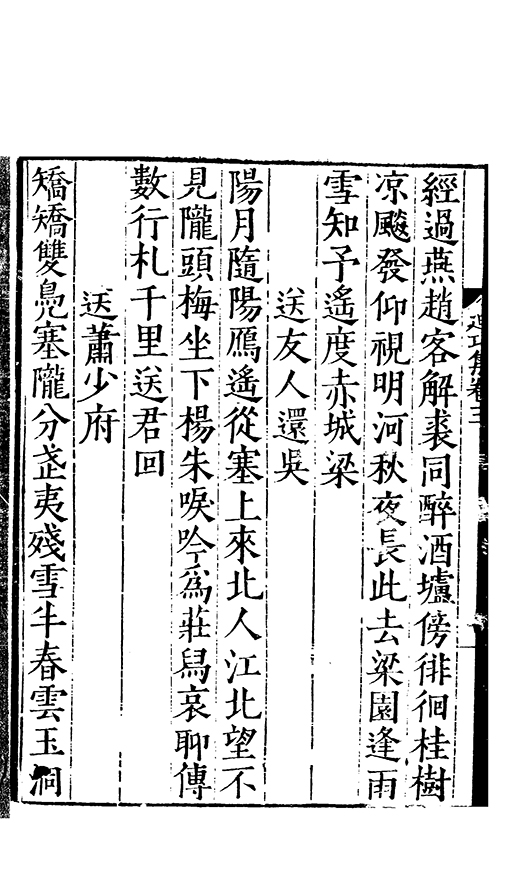 經過燕趙客解裘同醉酒壚傍徘徊桂樹
凉飈發仰視明河秋夜長此去梁園逢雨
雪知予遙度赤城梁
送友人還吳
陽月隨陽鴈遙從塞上來北人江北望不
見隴頭梅坐下楊朱唳吟爲莊舄哀聊傳
數行札千里送君回
送蕭少府
矯矯雙鳧塞隴分芝夷殘雪半春雲玉洞